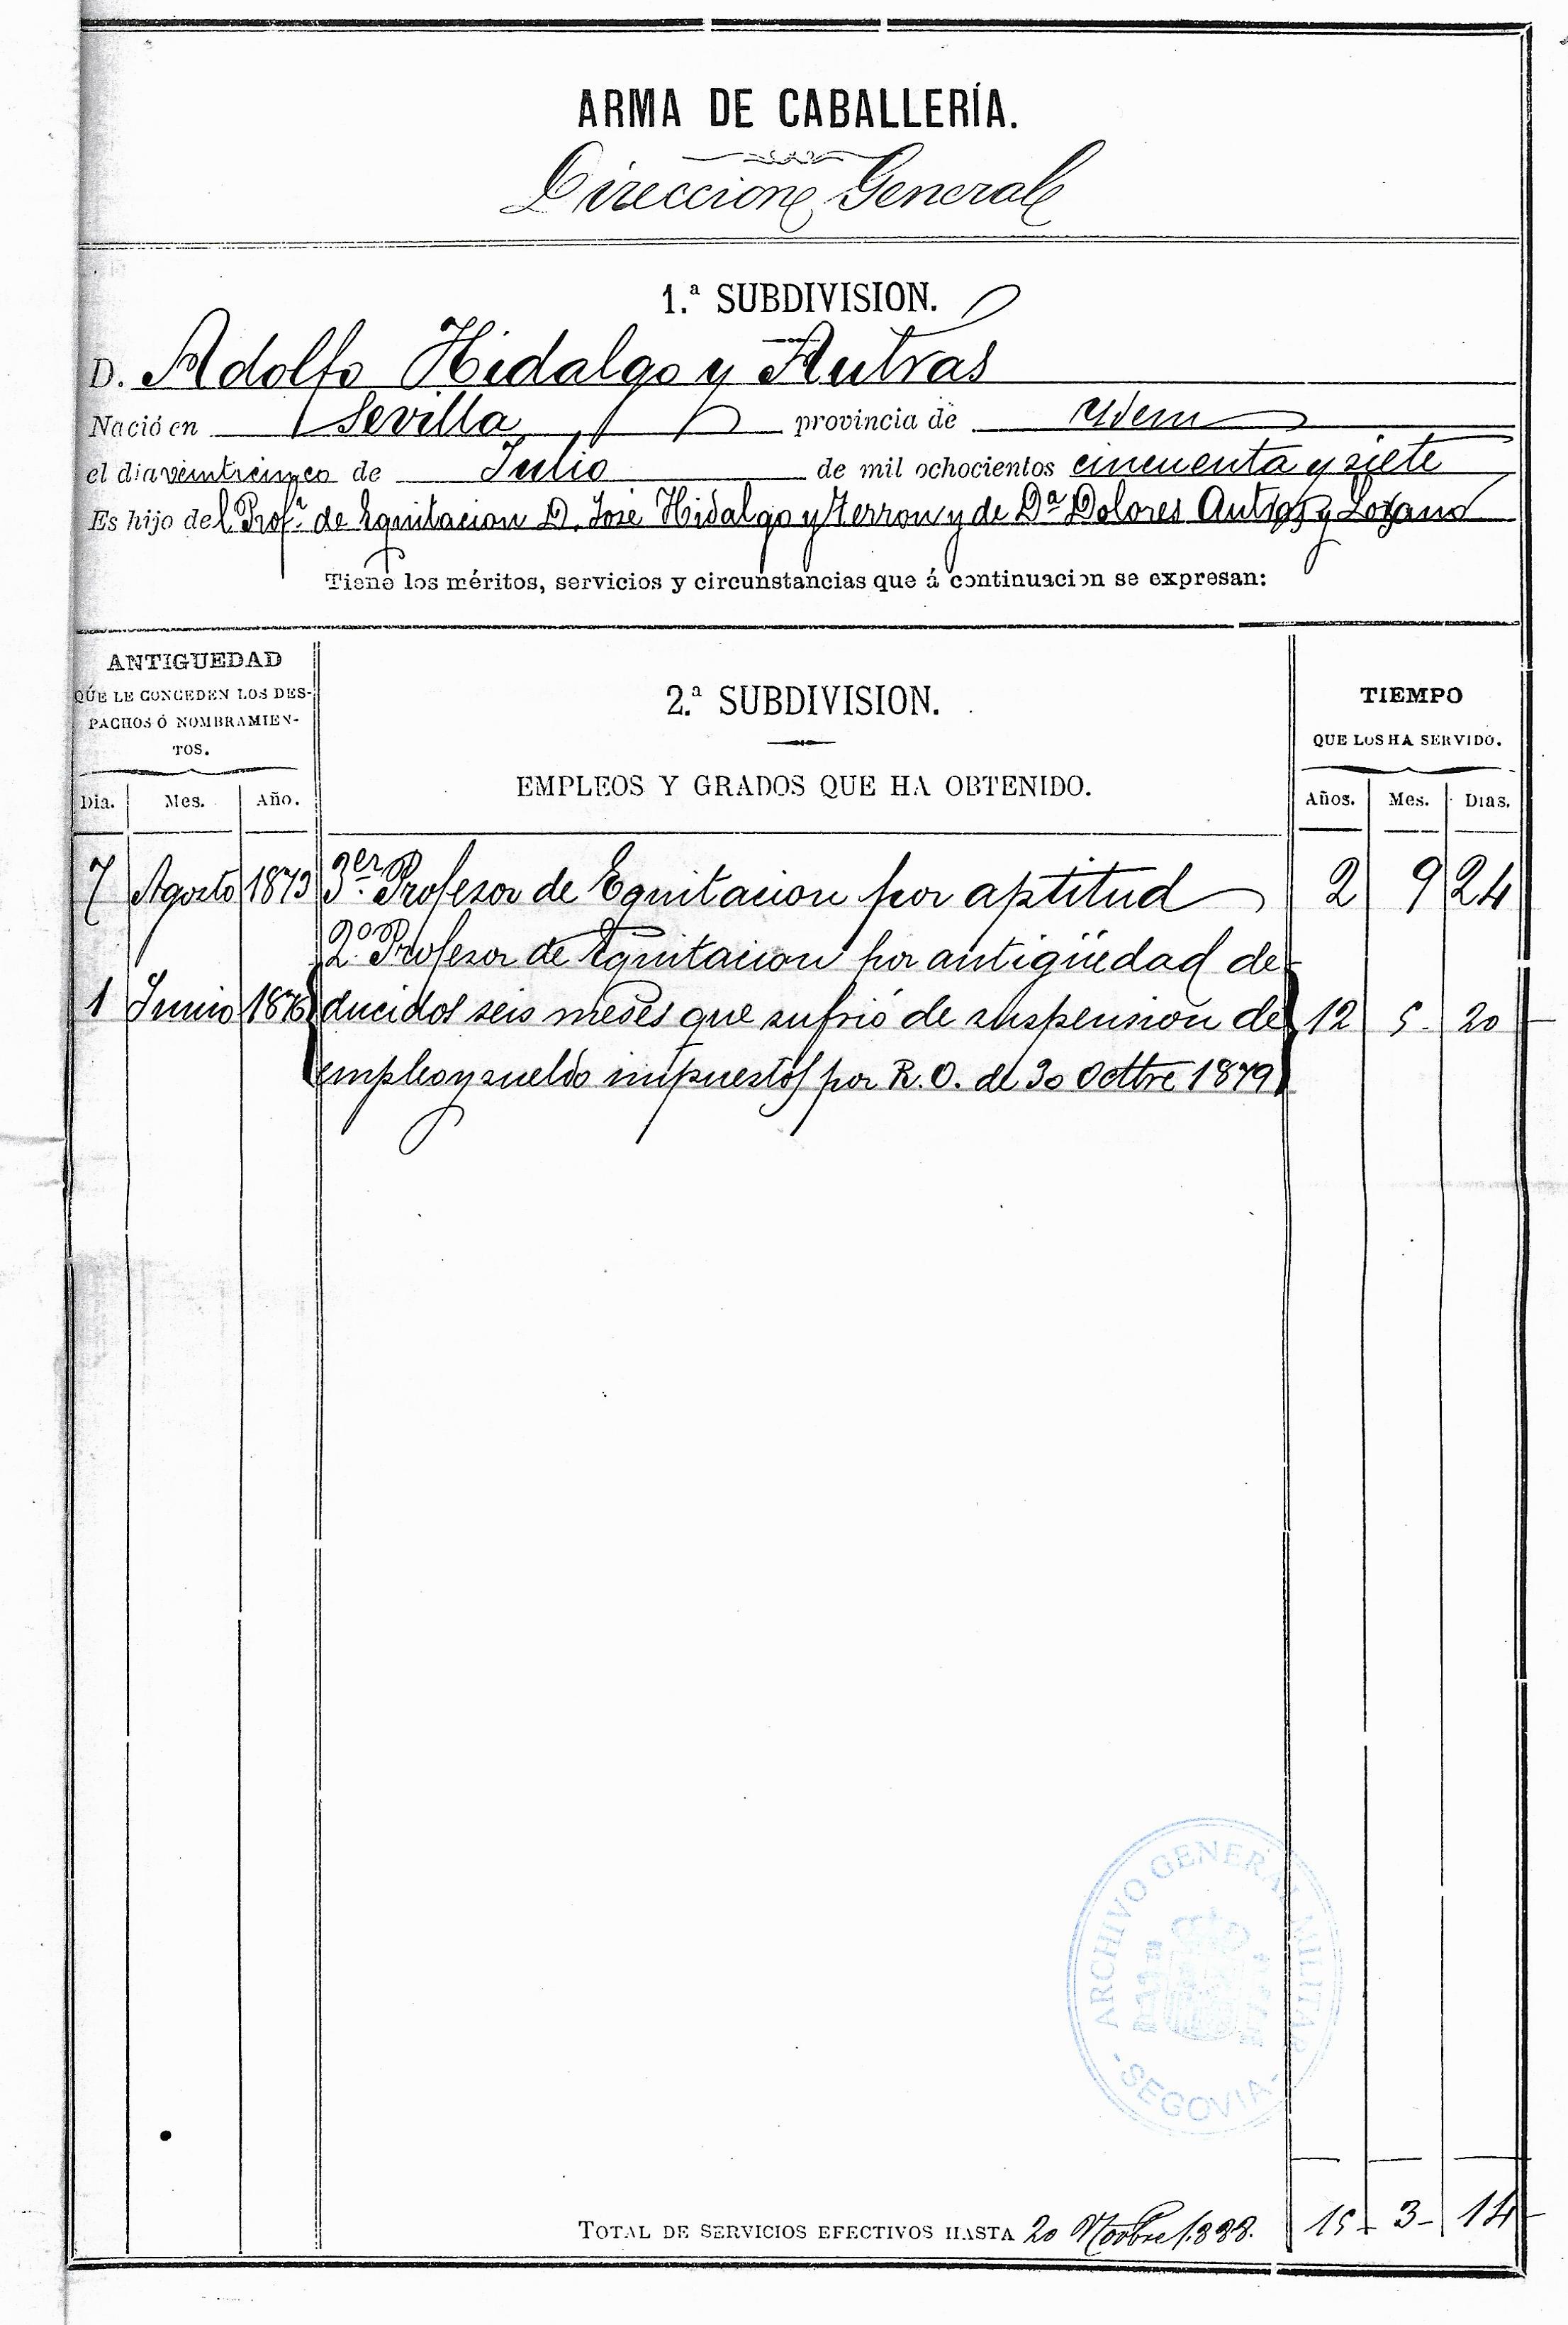 ARMA DE CABALLERÍA.
Direccion General
1.ª SUBDIVISION.
D. Adolfo Hidalgo y Autrás
Nació en Sevilla provincia de Idem
el dia veinticinco de Julio de mil ochocientos cincuenta y siete
Es hijo del Prof.r de Equitacion D. José Hidalgo y Terron y de Dª Dolores Autras y Lozano
Tiene los méritos, servicios y circunstancias que á continuacion se expresan:
ANTIGUEDAD
QUE LE CONCEDEN LOS DES-
PACHOS Ó NOMBRAMIEN-
TOS.
Dia. Mes. Año.
2.ª SUBDIVISION.
EMPLEOS Y GRADOS QUE HA OBTENIDO.
TIEMPO
QUE LOS HA SERVIDO.
Años. Mes. Dias.
7 Agosto 1873 3er Profesor de Equitacion por aptitud 2 9 24
2º Profesor de Equitacion por antigüedad de
1 Junio 1876 ducidos seis meses que sufrió de suspension de 12 5 20
empleo y sueldo impuestos por R. O. de 30 Octtre 1879
ARCHIVO GENERAL MILITAR
- SEGOVIA -
TOTAL DE SERVICIOS EFECTIVOS HASTA 20 Novbre 1888. 15 3 14